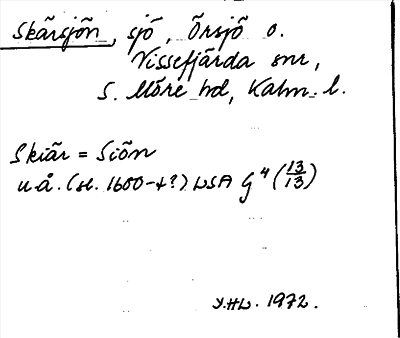 Skärsjön, sjö, Örsjö o.
Vissefjärda snr,
S. Möre hd, Kalm. l.
Skiär = Siön
u.å. (sl. 1600-t?) LSA G 4 (13/13)
Y.HL. 1972.